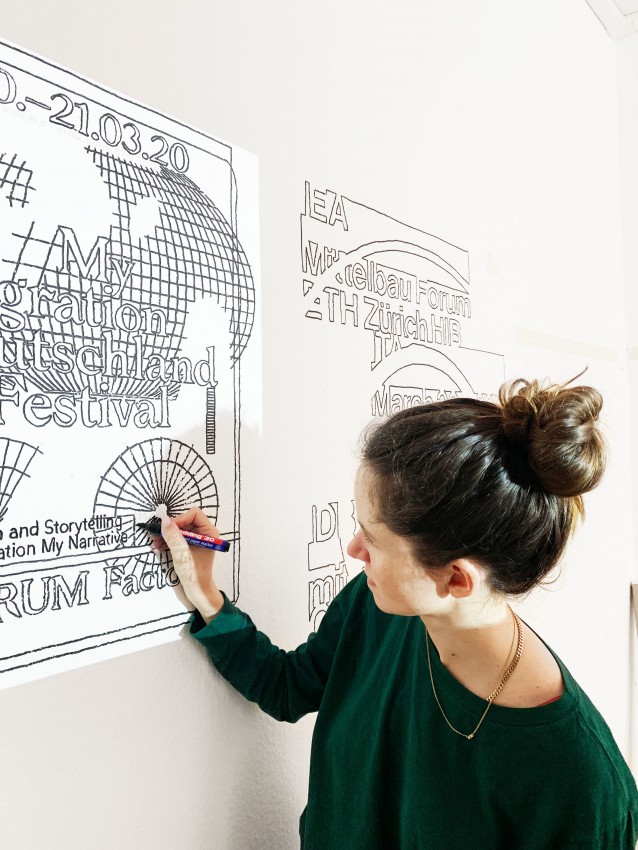 0.–21.03.20
My
gration
utschland
Festival
n and Storytelling
ation My Narrative
RUM Facto
EA
Mittelbau Forum
ETH Zürich HIB
March
edding 30